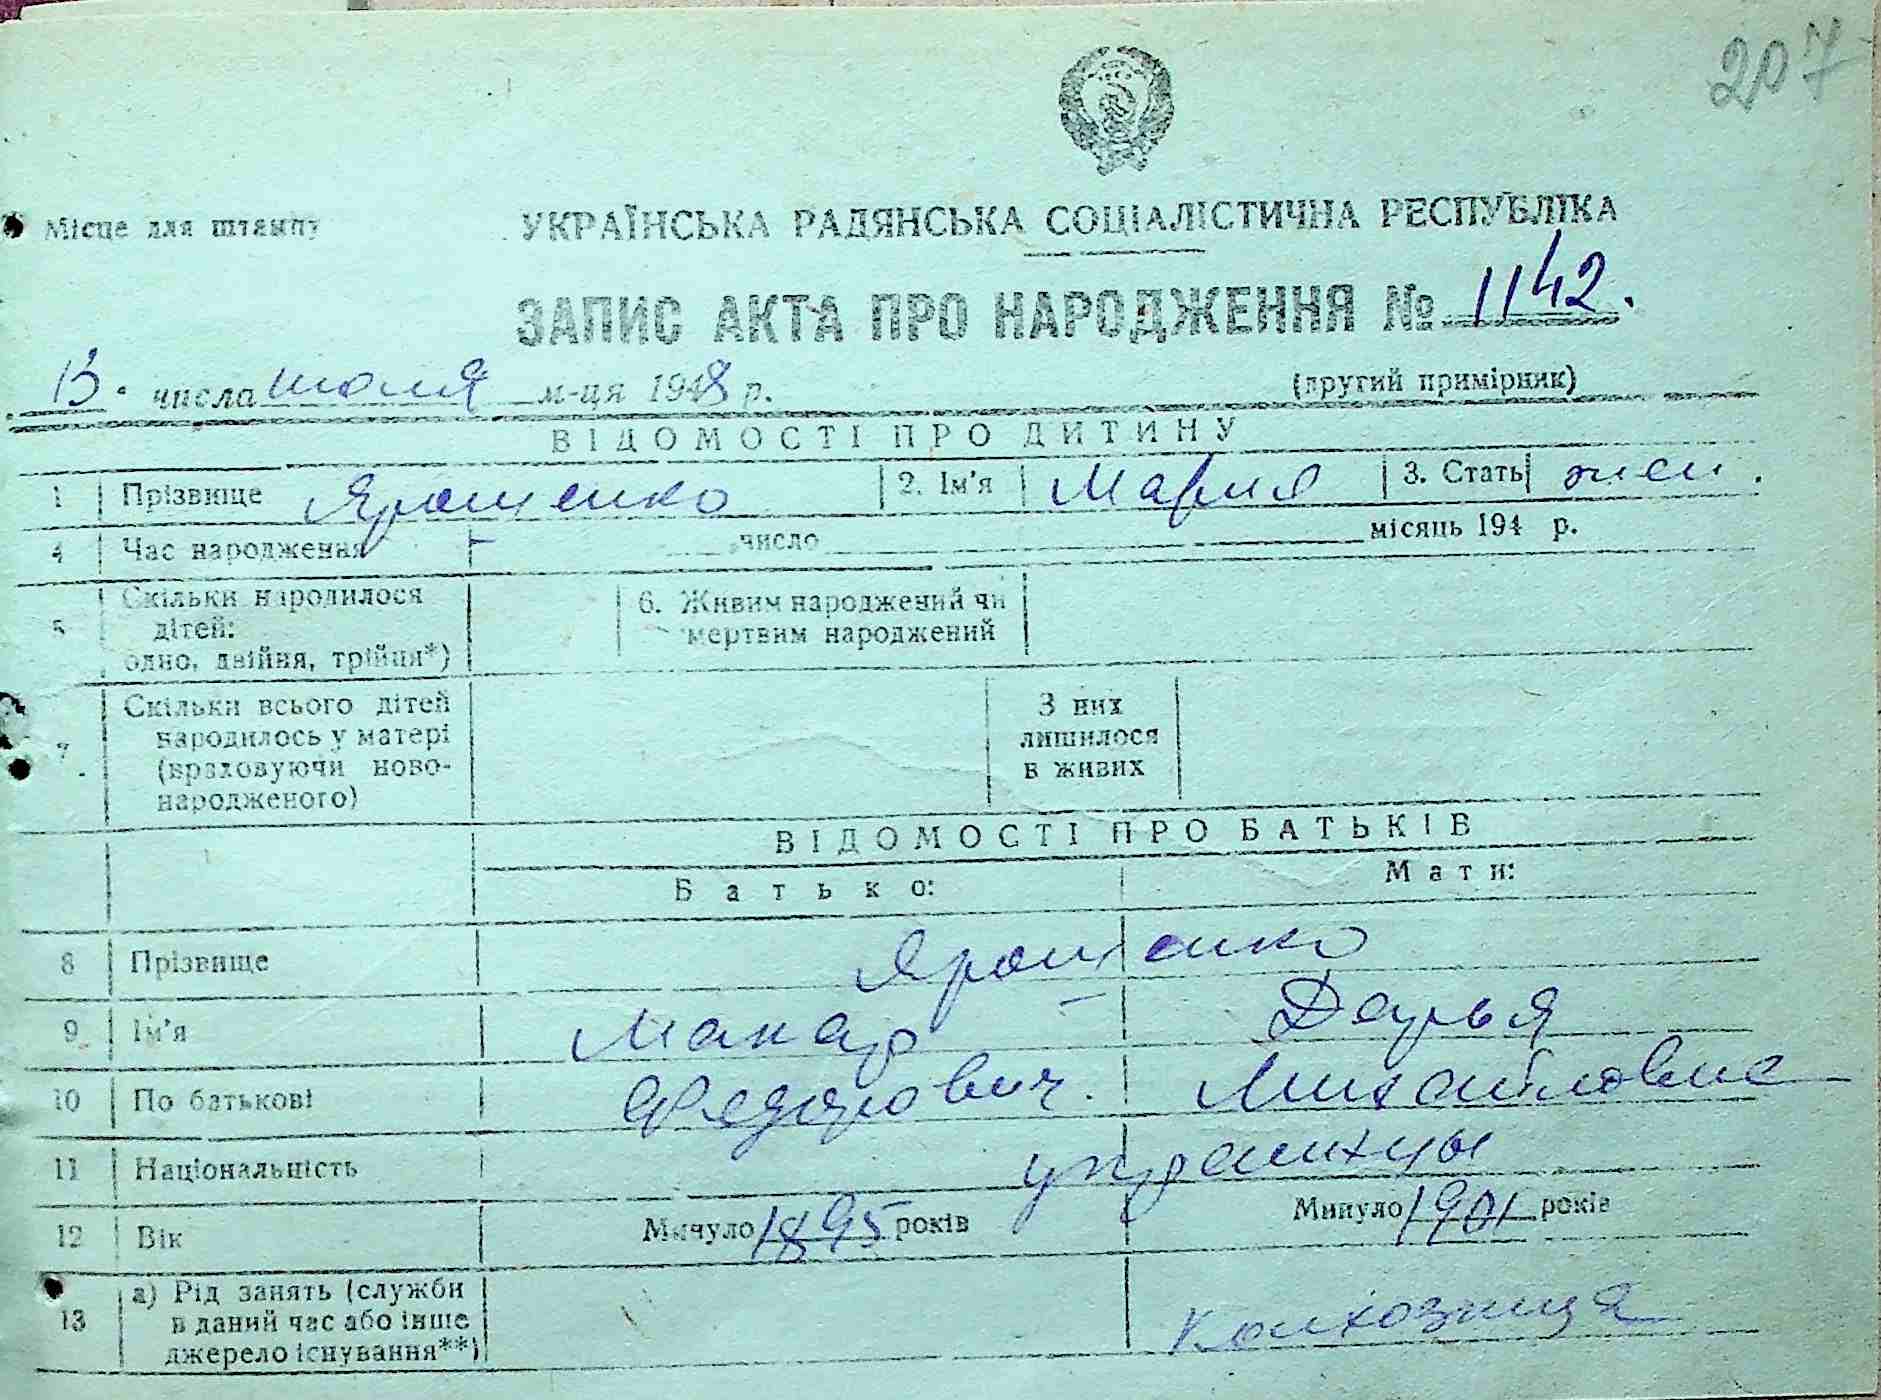 207
Місце для штампу
УКРАЇНСЬКА РАДЯНСЬКА СОЦІАЛІСТИЧНА РЕСПУБЛІКА
ЗАПИС АКТА ПРО НАРОДЖЕННЯ № 1142.
13. числа июля м-ця 1948 р. (другий примірник)
ВІДОМОСТІ ПРО ДИТИНУ
1 Прізвище Ярошенко 2. Ім'я Мария 3. Стать жен.
4 Час народження число місяць 194 р.
5 Скільки народилося дітей: одно, двійня, трійня*) 6. Живим народжений чи мертвим народжений
7 Скільки всього дітей народилось у матері (враховуючи новонародженого) З них лишилося в живих
ВІДОМОСТІ ПРО БАТЬКІВ
Батько: Мати:
8 Прізвище Ярошенко
9 Ім'я Макар Дарья
10 По батькові Федорович. Михайловна
11 Національність украинцы
12 Вік Минуло 1895 років Минуло 1901 років
13 а) Рід занять (служби в даний час або інше джерело існування**) Колхозница